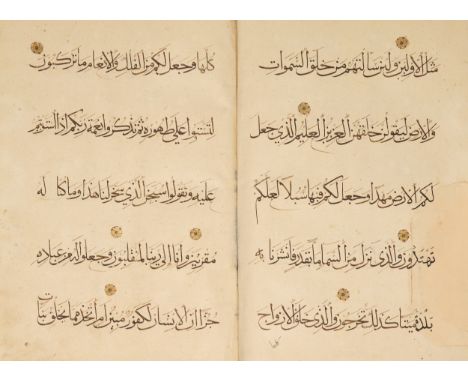 مثل الاولين ولين سالتهم من خلق السموات
والارض ليقولن خلقهن العزيز العليم الذي جعل
لكم الارض مهدا وجعل لكم فيها سبلا لعلكم
تهتدون والذي نزل من السما ما بقدر فانشرنا به
بلدة ميتا كذلك تخرجون والذي خلق الازواج
كلها
كلها وجعل لكم من الفلك والانعام ما تركبون
لتستووا علي ظهوره ثم تذكروا نعمة ربكم اذا استويتم
عليه وتقولوا سبحن الذي سخر لنا هذا وما كنا له
مقرنين وانا الي ربنا لمنقلبون وجعلوا له من عباده
جزا ان الانسان لكفور مبين ام اتخذ مما يخلق بنات